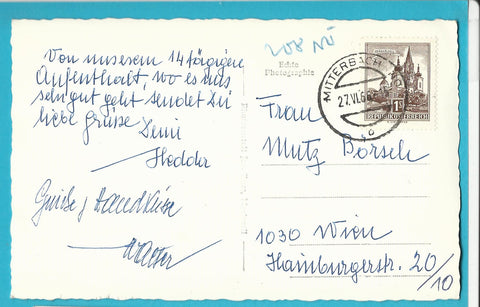 208 NÖ
Echte
Photographie
MITTERBACH
27.VI.6
1S
REPUBLIK ÖSTERREICH
Von unserem 14 tägigen
Aufenthalt, wo es uns
sehr gut geht sendet Dir
liebe Grüße Deine
Hedda
Grüße & Handküsse
Walter
Frau
Mutz Borsch
1030 Wien
Hainburgerstr. 20/10